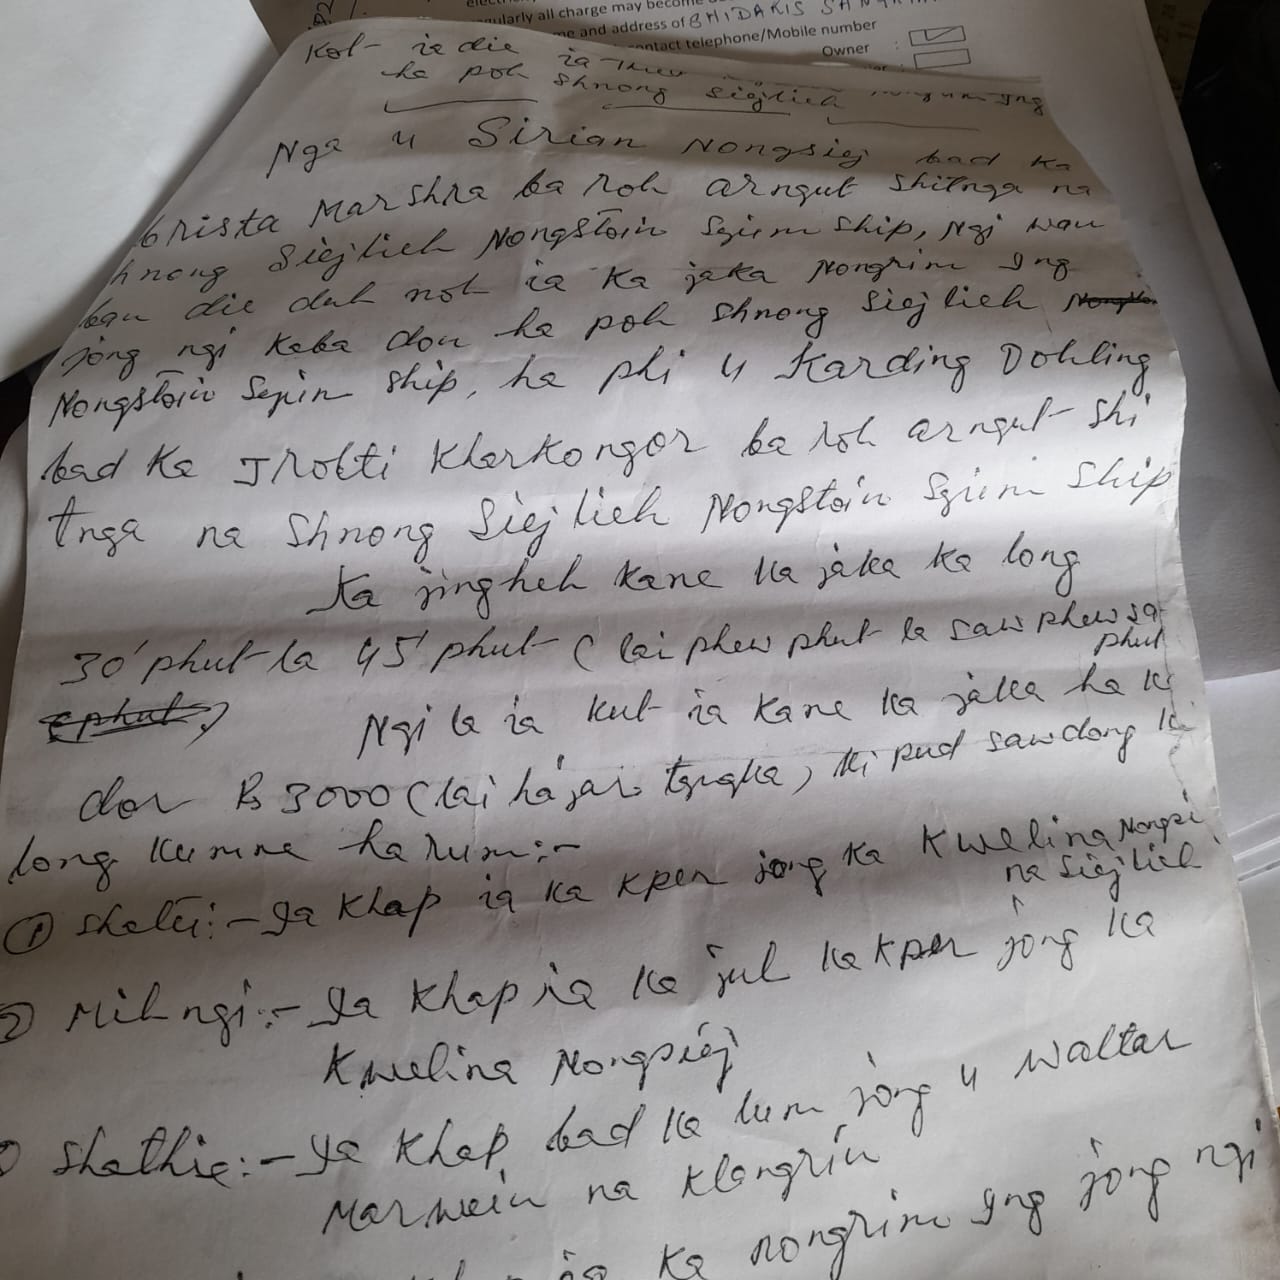 gularly all charge may become
me and address of BHIDAKIS
ontact telephone/Mobile number
Owner :
Kot- ia die ia
ha poh shnong Siejlieh
Nga u Sirian Nongsiej bad ka
brista Marshra ba roh arngut shitnga na
hnong Siejlieh Nongstoin Syiem ship, Ngi wan
ban die duh noh ia ka jaka Nongrim Ing
jong ngi kaba don ha poh shnong Siejlieh
Nongstoin Syiem ship, ha phi u Karding Dohling
bad ka Trolti Kharkongor ba roh arngut- shi
tnga na Shnong Siejlieh Nongstoin Syiem Ship
Ka jingheh kane ka jaka ka long
30' phut-la 45' phut- ( lai phew phut- la saw phew sa
phut
Ngi la ia kut- ia kane ka jaka ha k
dor Rs 3000 (lai hajar tyngka) ki pud sawdong k
long kumne harum:-
1 Shatei:- Ia khap ia ka kper jong ka Kwelina Nongsi
na Siejlieh
2 Mih ngi:- Ia khap ia ka jul ka kper jong ka
Kwelina Nongsiej
Shathie:- Ia khap bad ka lum jong u Waltar
Marwein na Klangriñ
ia ka nongrim Ing jong ngi